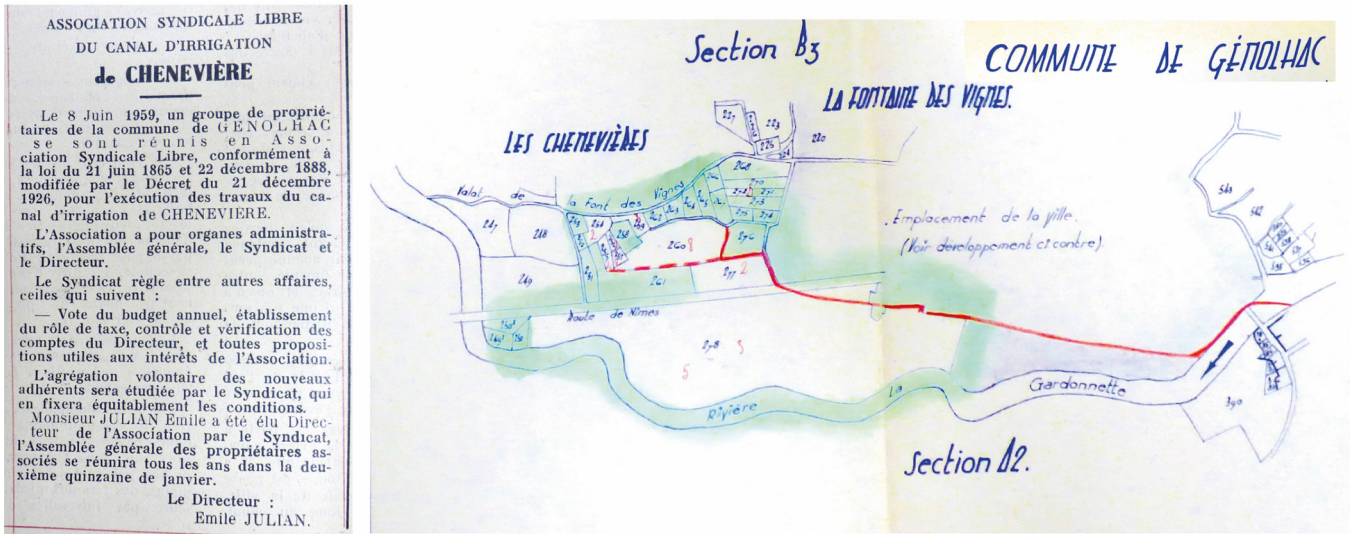 ASSOCIATION SYNDICALE LIBRE
DU CANAL D'IRRIGATION
de CHENEVIÈRE
Le 8 Juin 1959, un groupe de proprié-
taires de la commune de GENOLHAC
se sont réunis en Asso-
ciation Syndicale Libre, conformément à
la loi du 21 juin 1865 et 22 décembre 1888,
modifiée par le Décret du 21 décembre
1926, pour l'exécution des travaux du ca-
nal d'irrigation de CHENEVIERE.
L'Association a pour organes administra-
tifs, l'Assemblée générale, le Syndicat et
le Directeur.
Le Syndicat règle entre autres affaires,
celles qui suivent :
— Vote du budget annuel, établissement
du rôle de taxe, contrôle et vérification des
comptes du Directeur, et toutes proposi-
tions utiles aux intérêts de l'Association.
L'agrégation volontaire des nouveaux
adhérents sera étudiée par le Syndicat, qui
en fixera équitablement les conditions.
Monsieur JULIAN Emile a été élu Direc-
teur de l'Association par le Syndicat,
l'Assemblée générale des propriétaires as-
sociés se réunira tous les ans dans la deu-
xième quinzaine de janvier.
Le Directeur :
Emile JULIAN.
Section B3
COMMUNE DE GÉNOLHAC
LA FONTAINE DES VIGNES.
LES CHENEVIÈRES
227
223
226
224
220
Valat de la Font des Vignes
247
248
249
260 8
268
276
277 2
261
543
542
.Emplacement de la ville.
(Voir développement ci contre).
Route de Nîmes
278 3
5
Rivière La Gardonnette
390
Section A2.